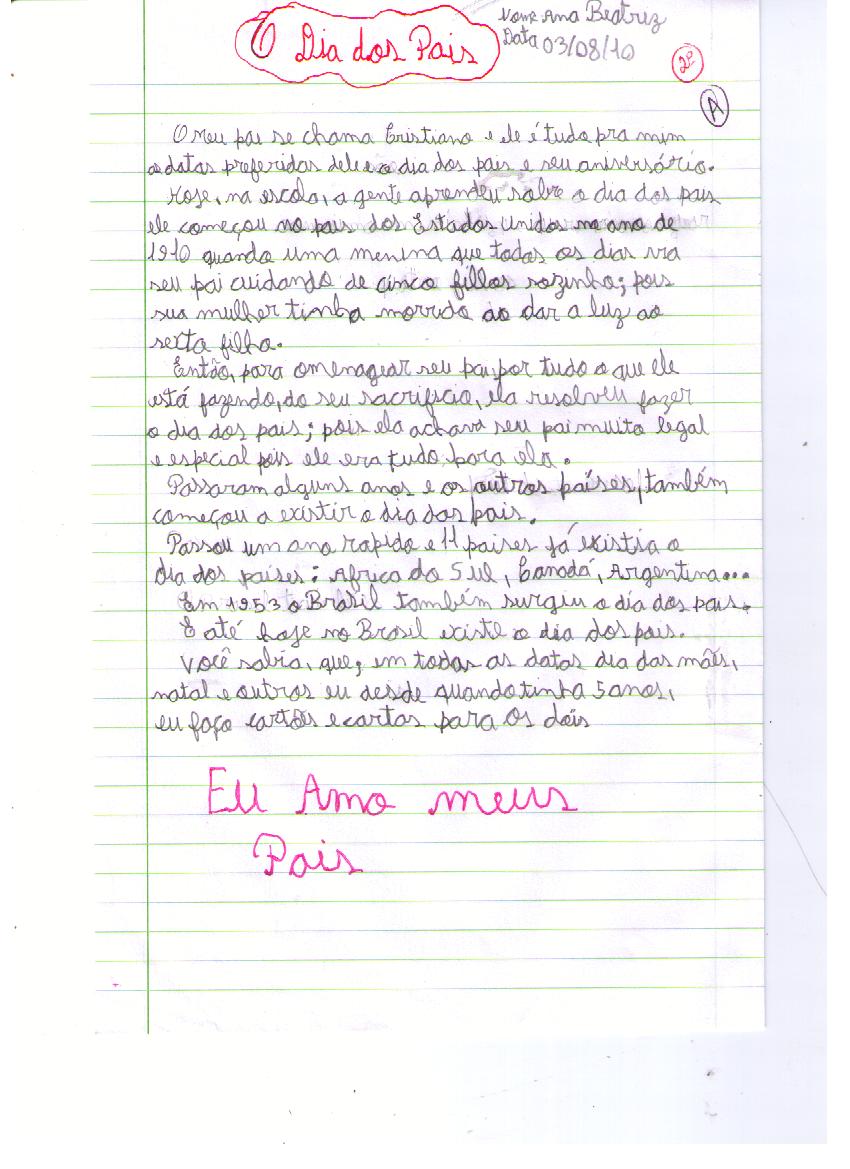 O Dia dos Pais
Nome Ana Beatriz
Data 03/08/10
2º
A
O meu pai se chama Cristiano e ele é tudo pra mim
as datas preferidas dele e o dia dos pais e seu aniversário.
Hoje, na escola, a gente aprendeu sobre o dia dos pais
ele começou no pais dos Estados Unidos no ano de
1910 quando uma menina que todos os dias via
seu pai cuidando de cinco filhos sozinho; pois
sua mulher tinha morrido ao dar a luz ao
sexto filho.
Então, para omenagear seu pai por tudo o que ele
está fazendo, do seu sacrifscio, ela resolveu fazer
o dia dos pais; pois ela achava seu pai muito legal
e especial pois ele era tudo para ela.
Passaram alguns anos e os outros países, também
começou a existir o dia dos pais.
Passou um ano rapido e 11 paises já existia o
dia dos paises: Africa do Sul, Canadá, Argentina...
Em 1953 o Brasil também surgiu o dia dos pais.
E até hoje no Brasil existe o dia dos pais.
Você sabia, que, em todas as datas dia das mães,
natal e outros eu desde quando tinha 5 anos,
eu faço cartões e cartas para os dois
Eu Amo meus
Pais